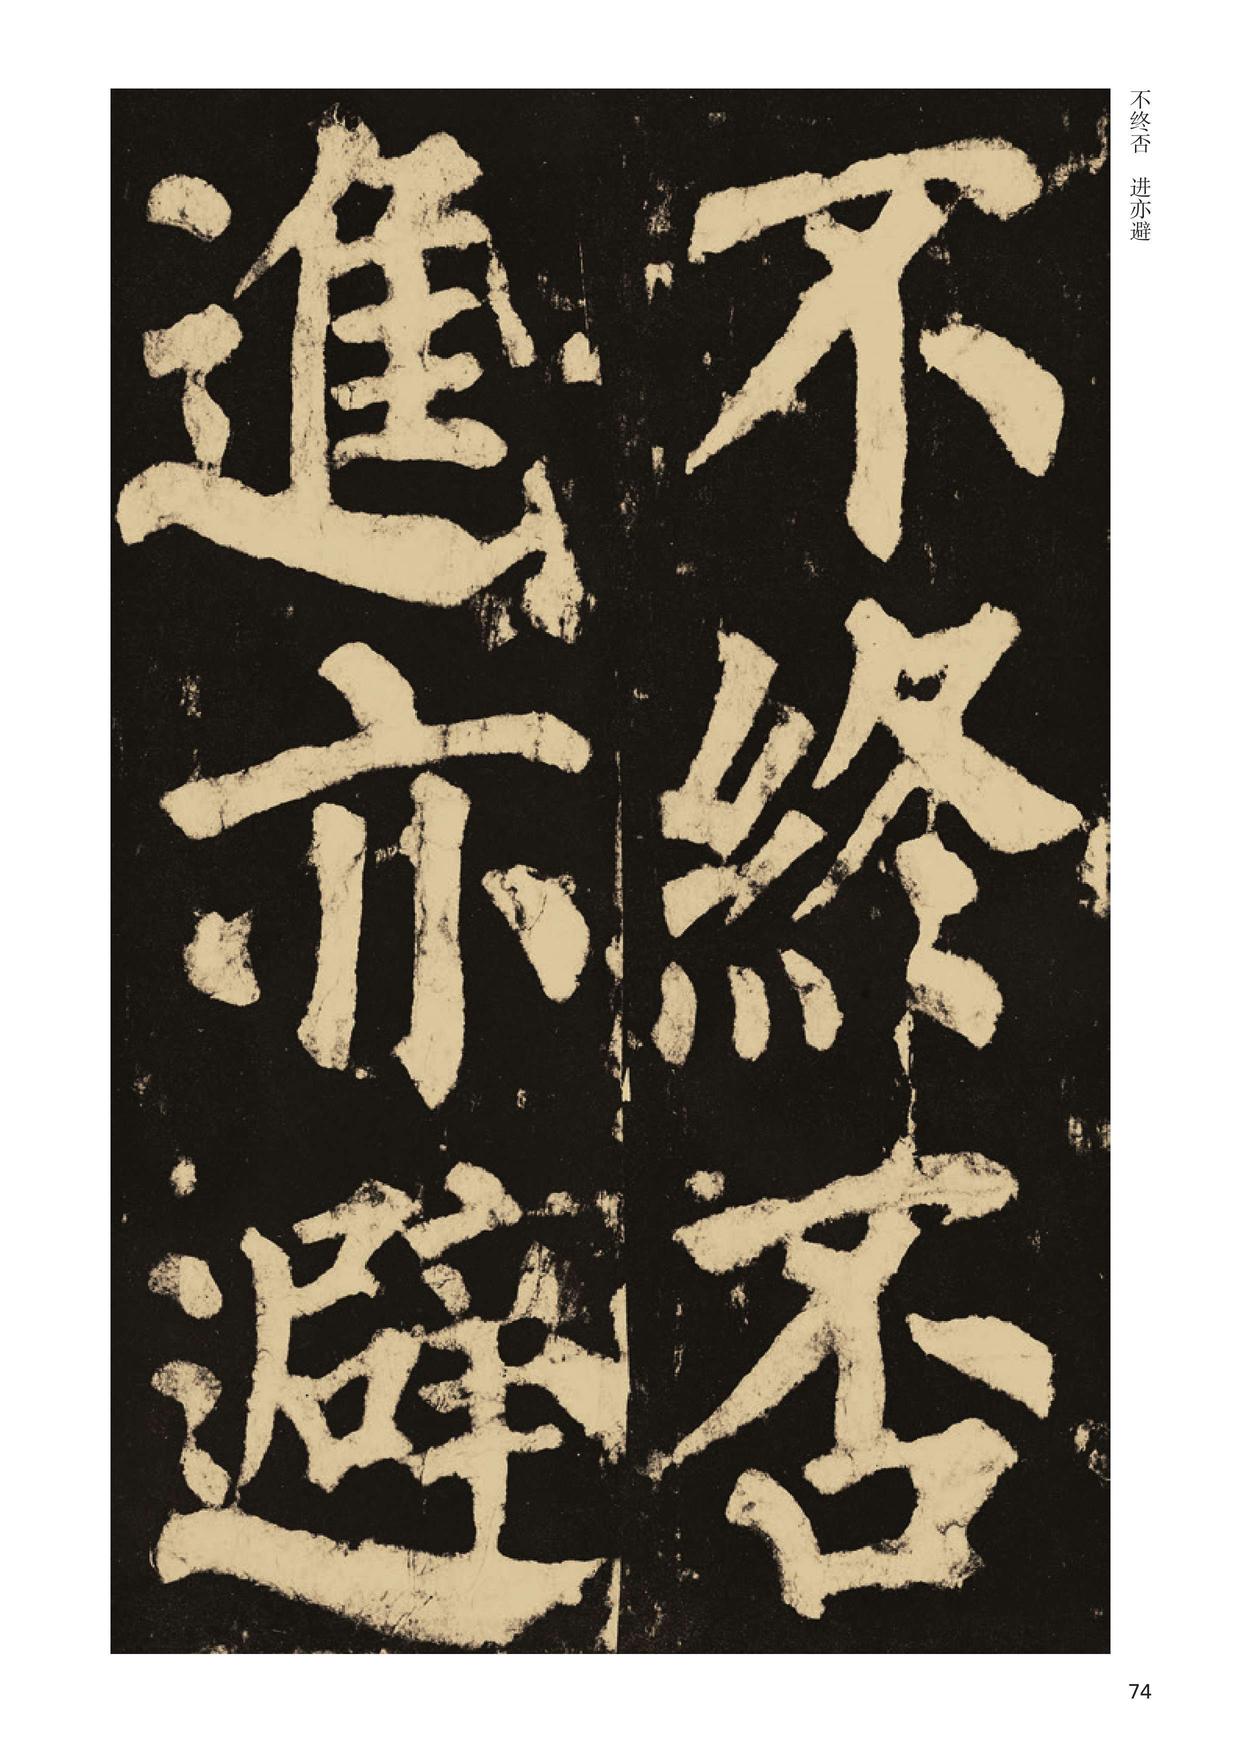 不終否
進亦避
不终否 进亦避
74